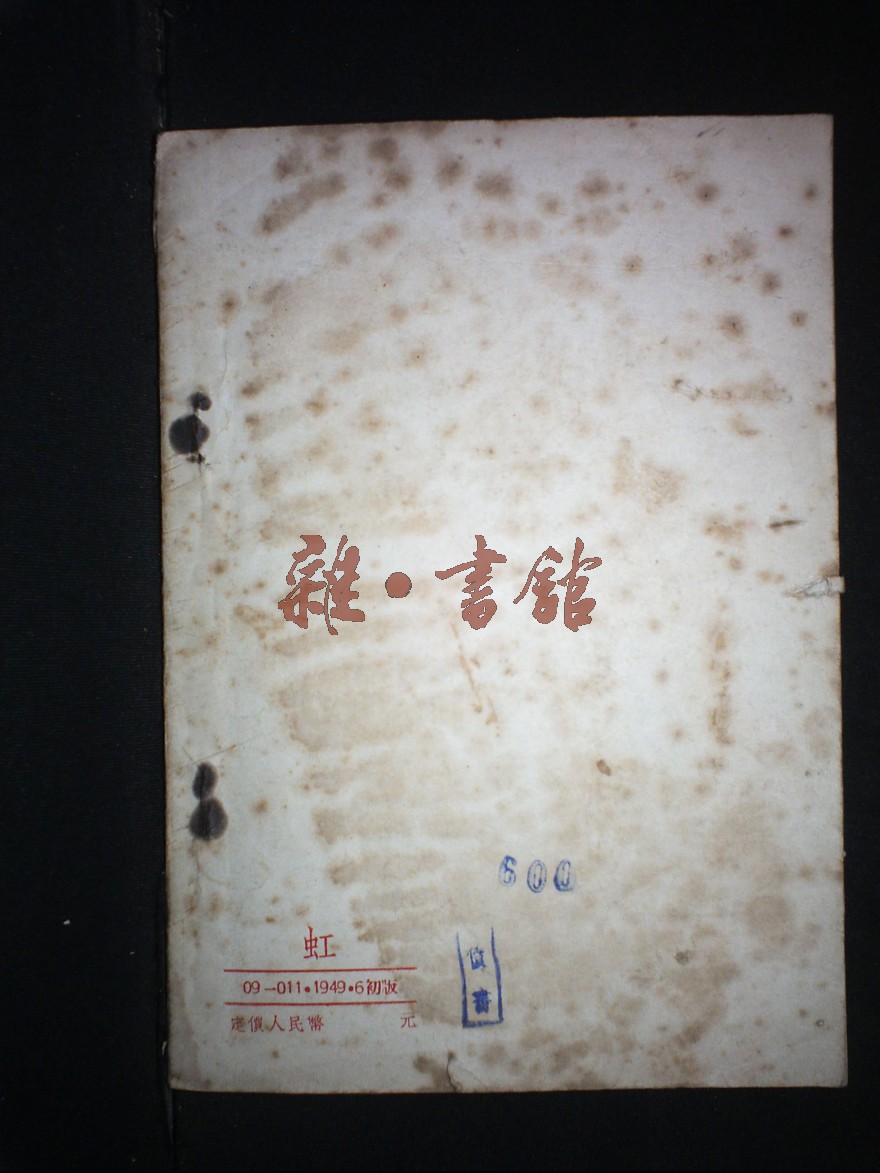 雜·書館
600
虹
09—011•1949•6初版
定價人民幣 元